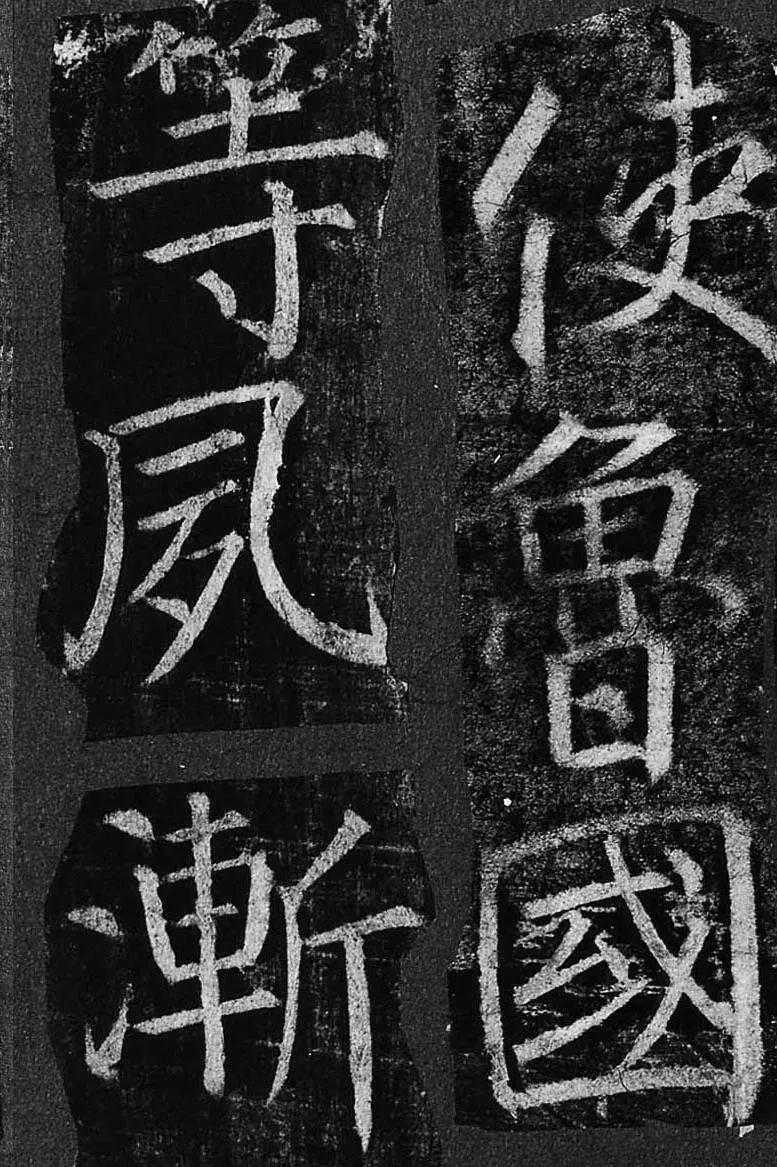 使魯國
等夙漸